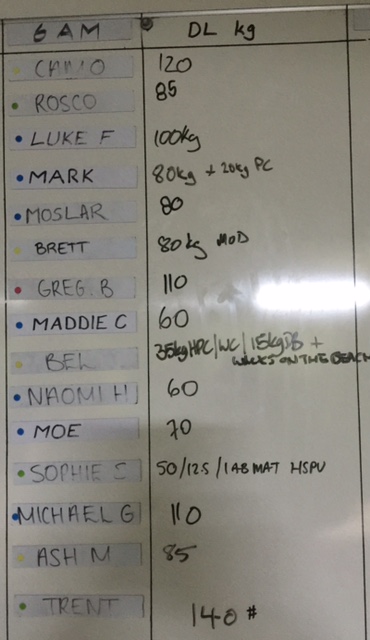 6 AM DL kg
CAMO 120
ROSCO 85
LUKE F 100kg
MARK 80kg + 20kg PC
MOSLAR 80
BRETT 80kg MOD
GREG. B 110
MADDIE C 60
BEL 35kg HPC/WC/15kg DB +
WALKS ON THE BEACH
NAOMI H 60
MOE 70
SOPHIE S 50/12.5/1 ABMAT HSPU
MICHAEL G 110
ASH M 85
TRENT 140 #